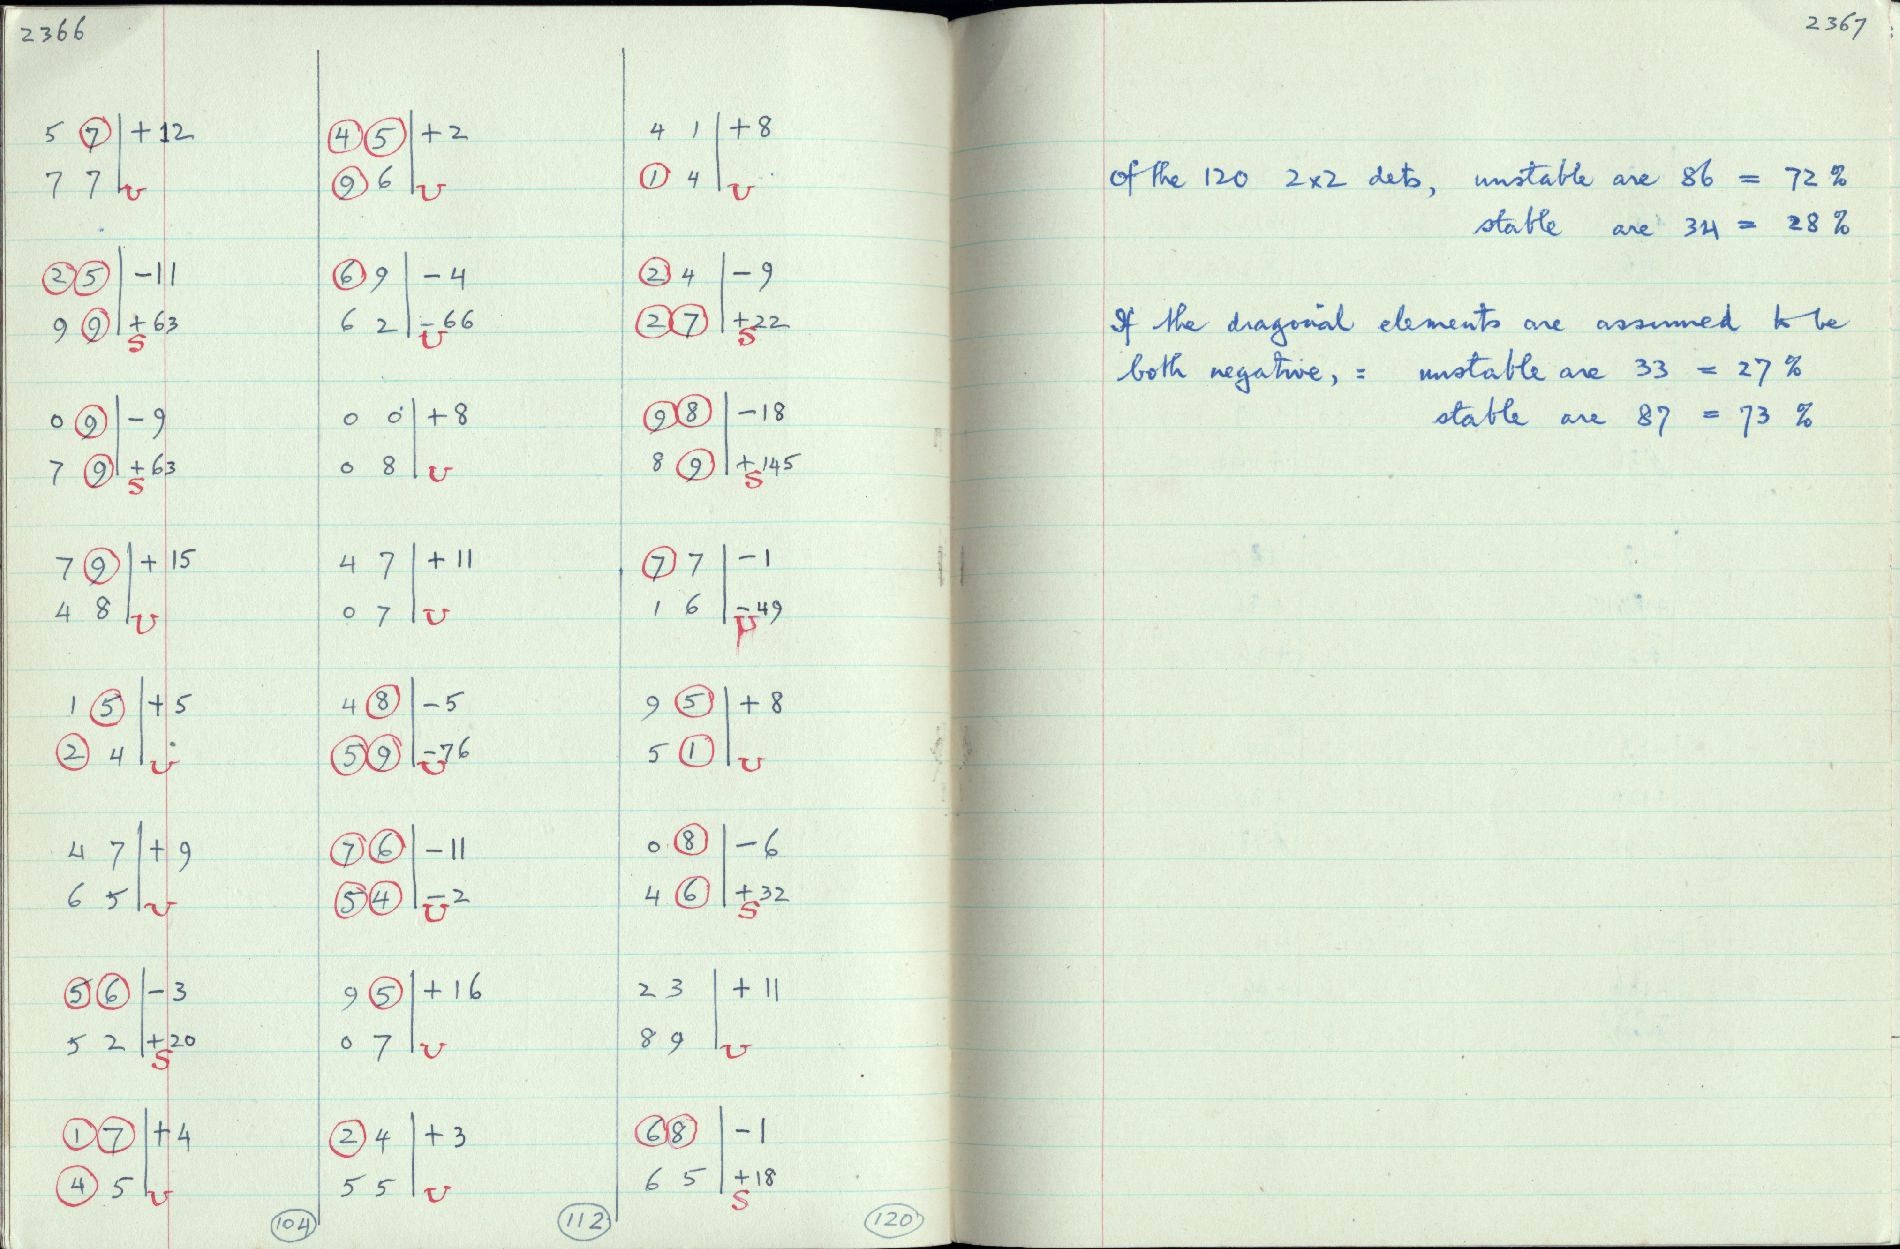 2366
5 7 +12
7 7 U
2 5 -11
9 9 +63
S
0 9 -9
7 9 +63
S
7 9 +15
4 8 U
1 5 +5
2 4 U
4 7 +9
6 5 U
5 6 -3
5 2 +20
S
1 7 +4
4 5 U
104
4 5 +2
9 6 U
6 9 -4
6 2 -66
U
0 0 +8
0 8 U
4 7 +11
0 7 U
4 8 -5
5 9 -76
U
7 6 -11
5 4 -2
U
9 5 +16
0 7 U
2 4 +3
5 5 U
112
4 1 +8
1 4 U
2 4 -9
2 7 +22
S
9 8 -18
8 9 +145
S
7 7 -1
1 6 -49
U
9 5 +8
5 1 U
0 8 -6
4 6 +32
S
2 3 +11
8 9 U
6 8 -1
6 5 +18
S
120
2367
Of the 120 2x2 dets, unstable are 86 = 72%
stable are 34 = 28%
If the diagonal elements are assumed to be
both negative, = unstable are 33 = 27%
stable are 87 = 73 %